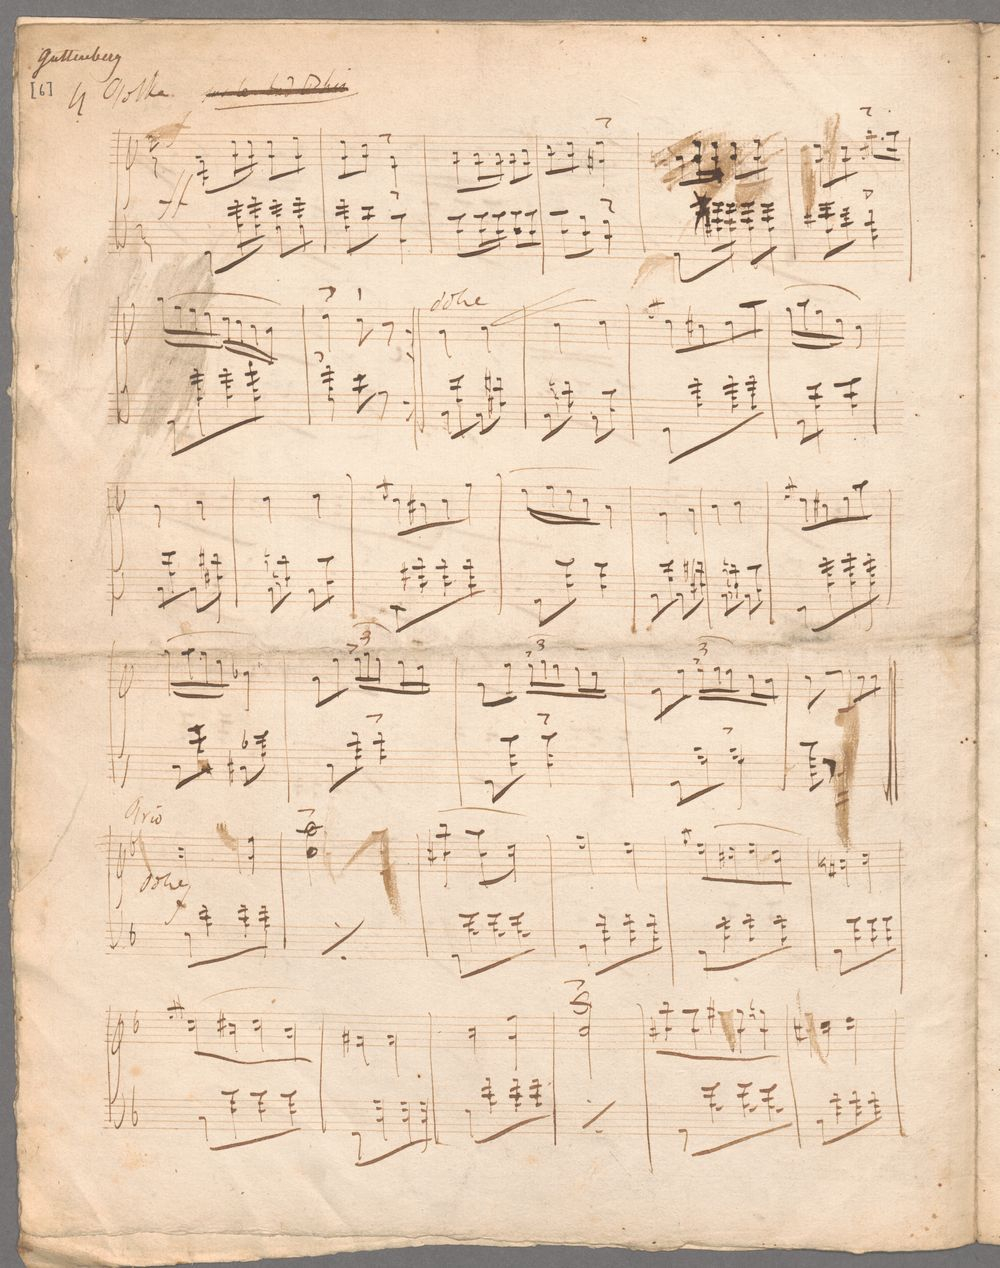 Guttenberg
[6] 4 Polka
ff
dolce
3 3 3
Trio
dolce